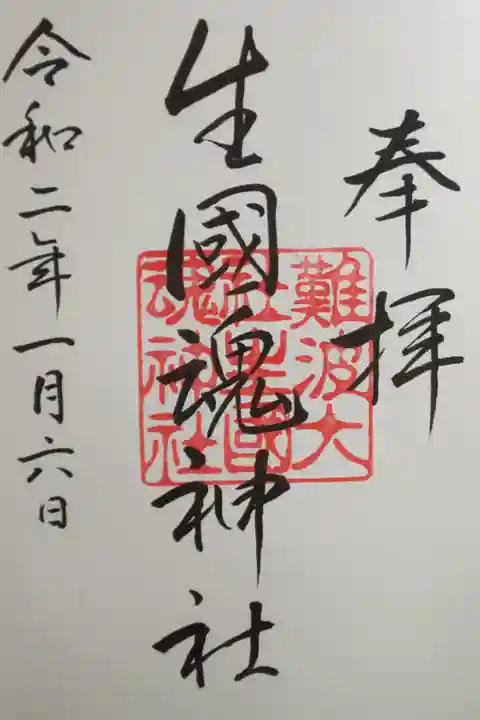 奉拝
生國魂神社
難波大
社生國
魂神社
令和二年一月六日